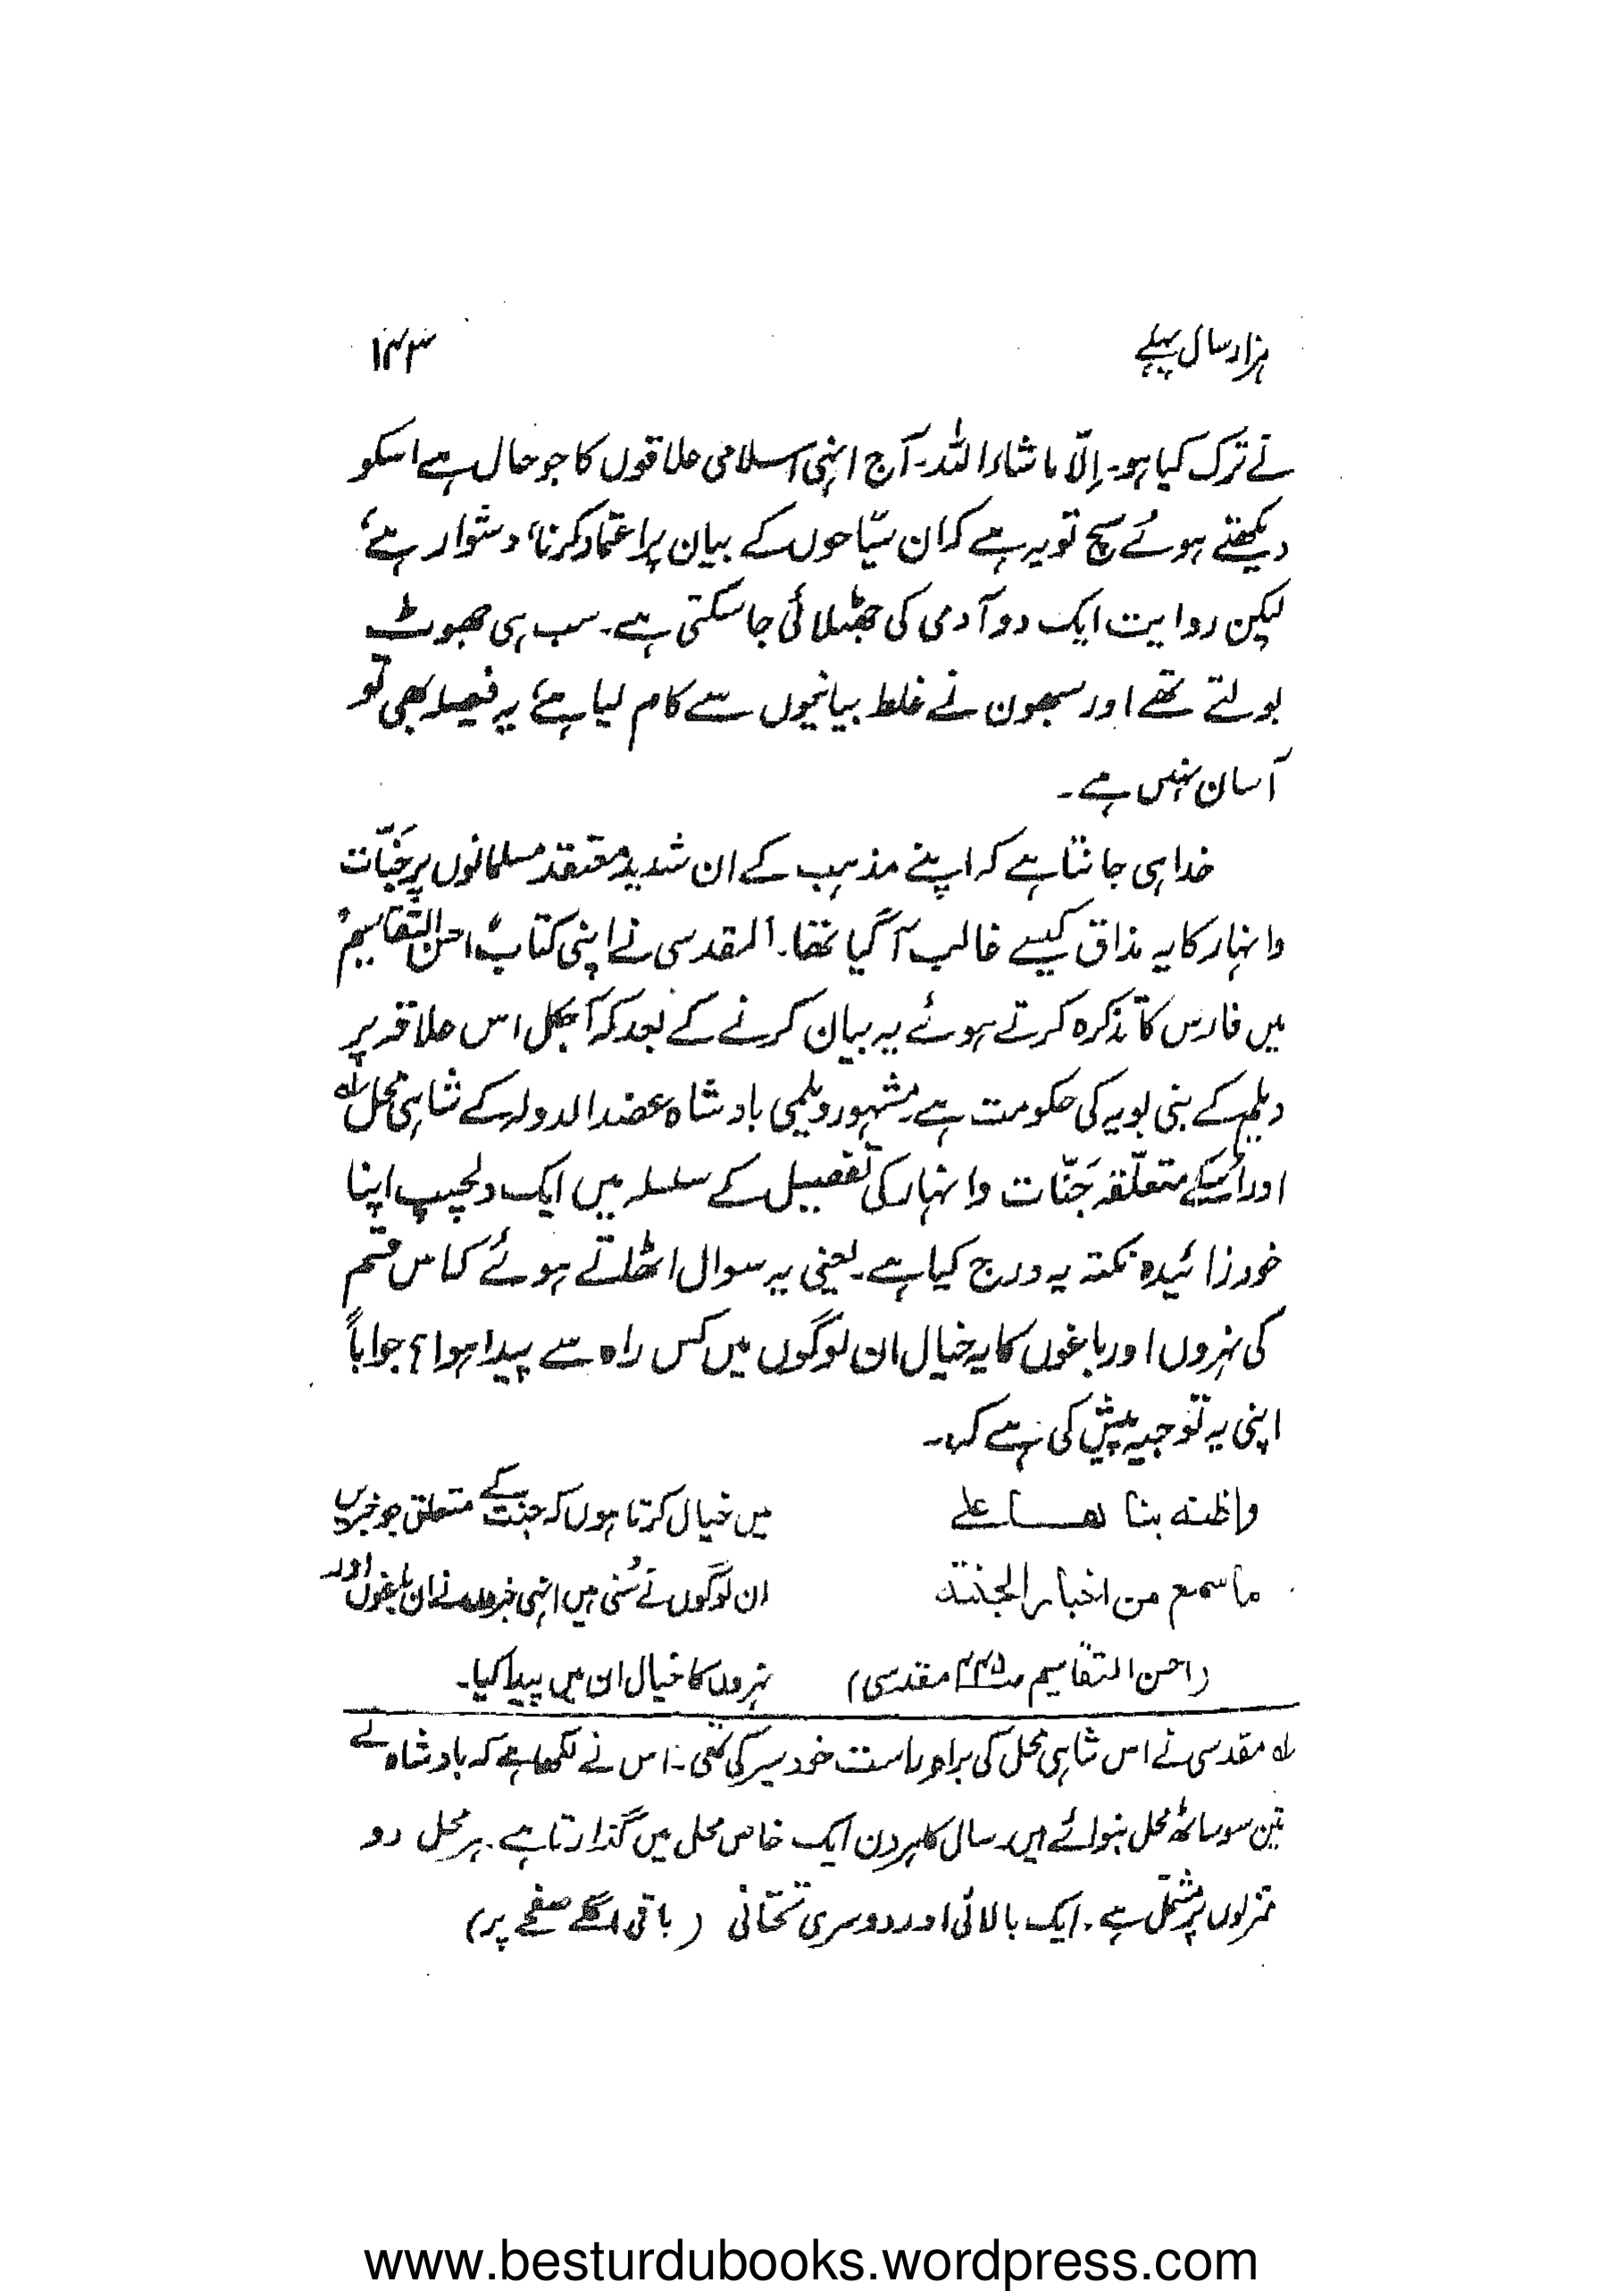 ہزار سال پہلے
۱۴۳
نے ترک کیا ہو۔ اِلّا ماشاء اللہ۔ آج انہی اسلامی علاقوں کا جو حال ہے اسکو
دیکھتے ہوئے سچ تو یہ ہے کہ ان سیّاحوں کے بیان پر اعتماد کرنا، دشوار ہے،
لیکن روایت ایک دو آدمی کی جھٹلائی جا سکتی ہے۔ سب ہی جھوٹ
بولتے تھے اور سبھوں نے غلط بیانیوں سے کام لیا ہے، یہ فیصلہ بھی تو
آسان نہیں ہے۔
خدا ہی جانتا ہے کہ اپنے مذہب کے ان شدید معتقد مسلمانوں پر جَنّات
وانہار کا یہ مذاق کیسے غالب آگیا تھا۔ المقدسی نے اپنی کتاب "احسن التقاسیم"
میں فارس کا تذکرہ کرتے ہوئے یہ بیان کرنے کے بعد کہ آجکل اس علاقہ پر
دیلم کے بنی بویہ کی حکومت ہے مشہور ویلمی بادشاہ عضد الدولہ کے شاہی محل لہ
اور اُسکے متعلّقہ جَنّات وانہار کی تفصیل کے سلسلہ میں ایک دلچسپ اپنا
خود زائیدہ نکتہ یہ درج کیا ہے۔ یعنی یہ سوال اٹھاتے ہوئے کہ اس قسم
کی نہروں اور باغوں کا یہ خیال ان لوگوں میں کس راہ سے پیدا ہوا؟ جواباً
اپنی یہ توجیہ پیش کی ہے کہ۔
واظنه بناھا علی
ما سمع من اخبار الجنة
(احسن التقاسیم ص۴۴۵ مقدسی)
میں خیال کرتا ہوں کہ جنت کے متعلق جو خبریں
ان لوگوں نے سُنی ہیں انہی خبروں نے ان باغوں اور
نہروں کا خیال ان میں پیدا کیا۔
لہ مقدسی نے اس شاہی محل کی براہ راست خود سیر کی تھی۔ اس نے لکھا ہے کہ بادشاہ نے
تین سو ساٹھ محل بنوائے ہیں، سال کا ہر دن ایک خاص محل میں گذارتا ہے۔ ہر محل دو
منزلوں پر مشتمل ہے۔ ایک بالائی اور دوسری تحتانی (باقی اگلے صفحے پر)
www.besturdubooks.wordpress.com